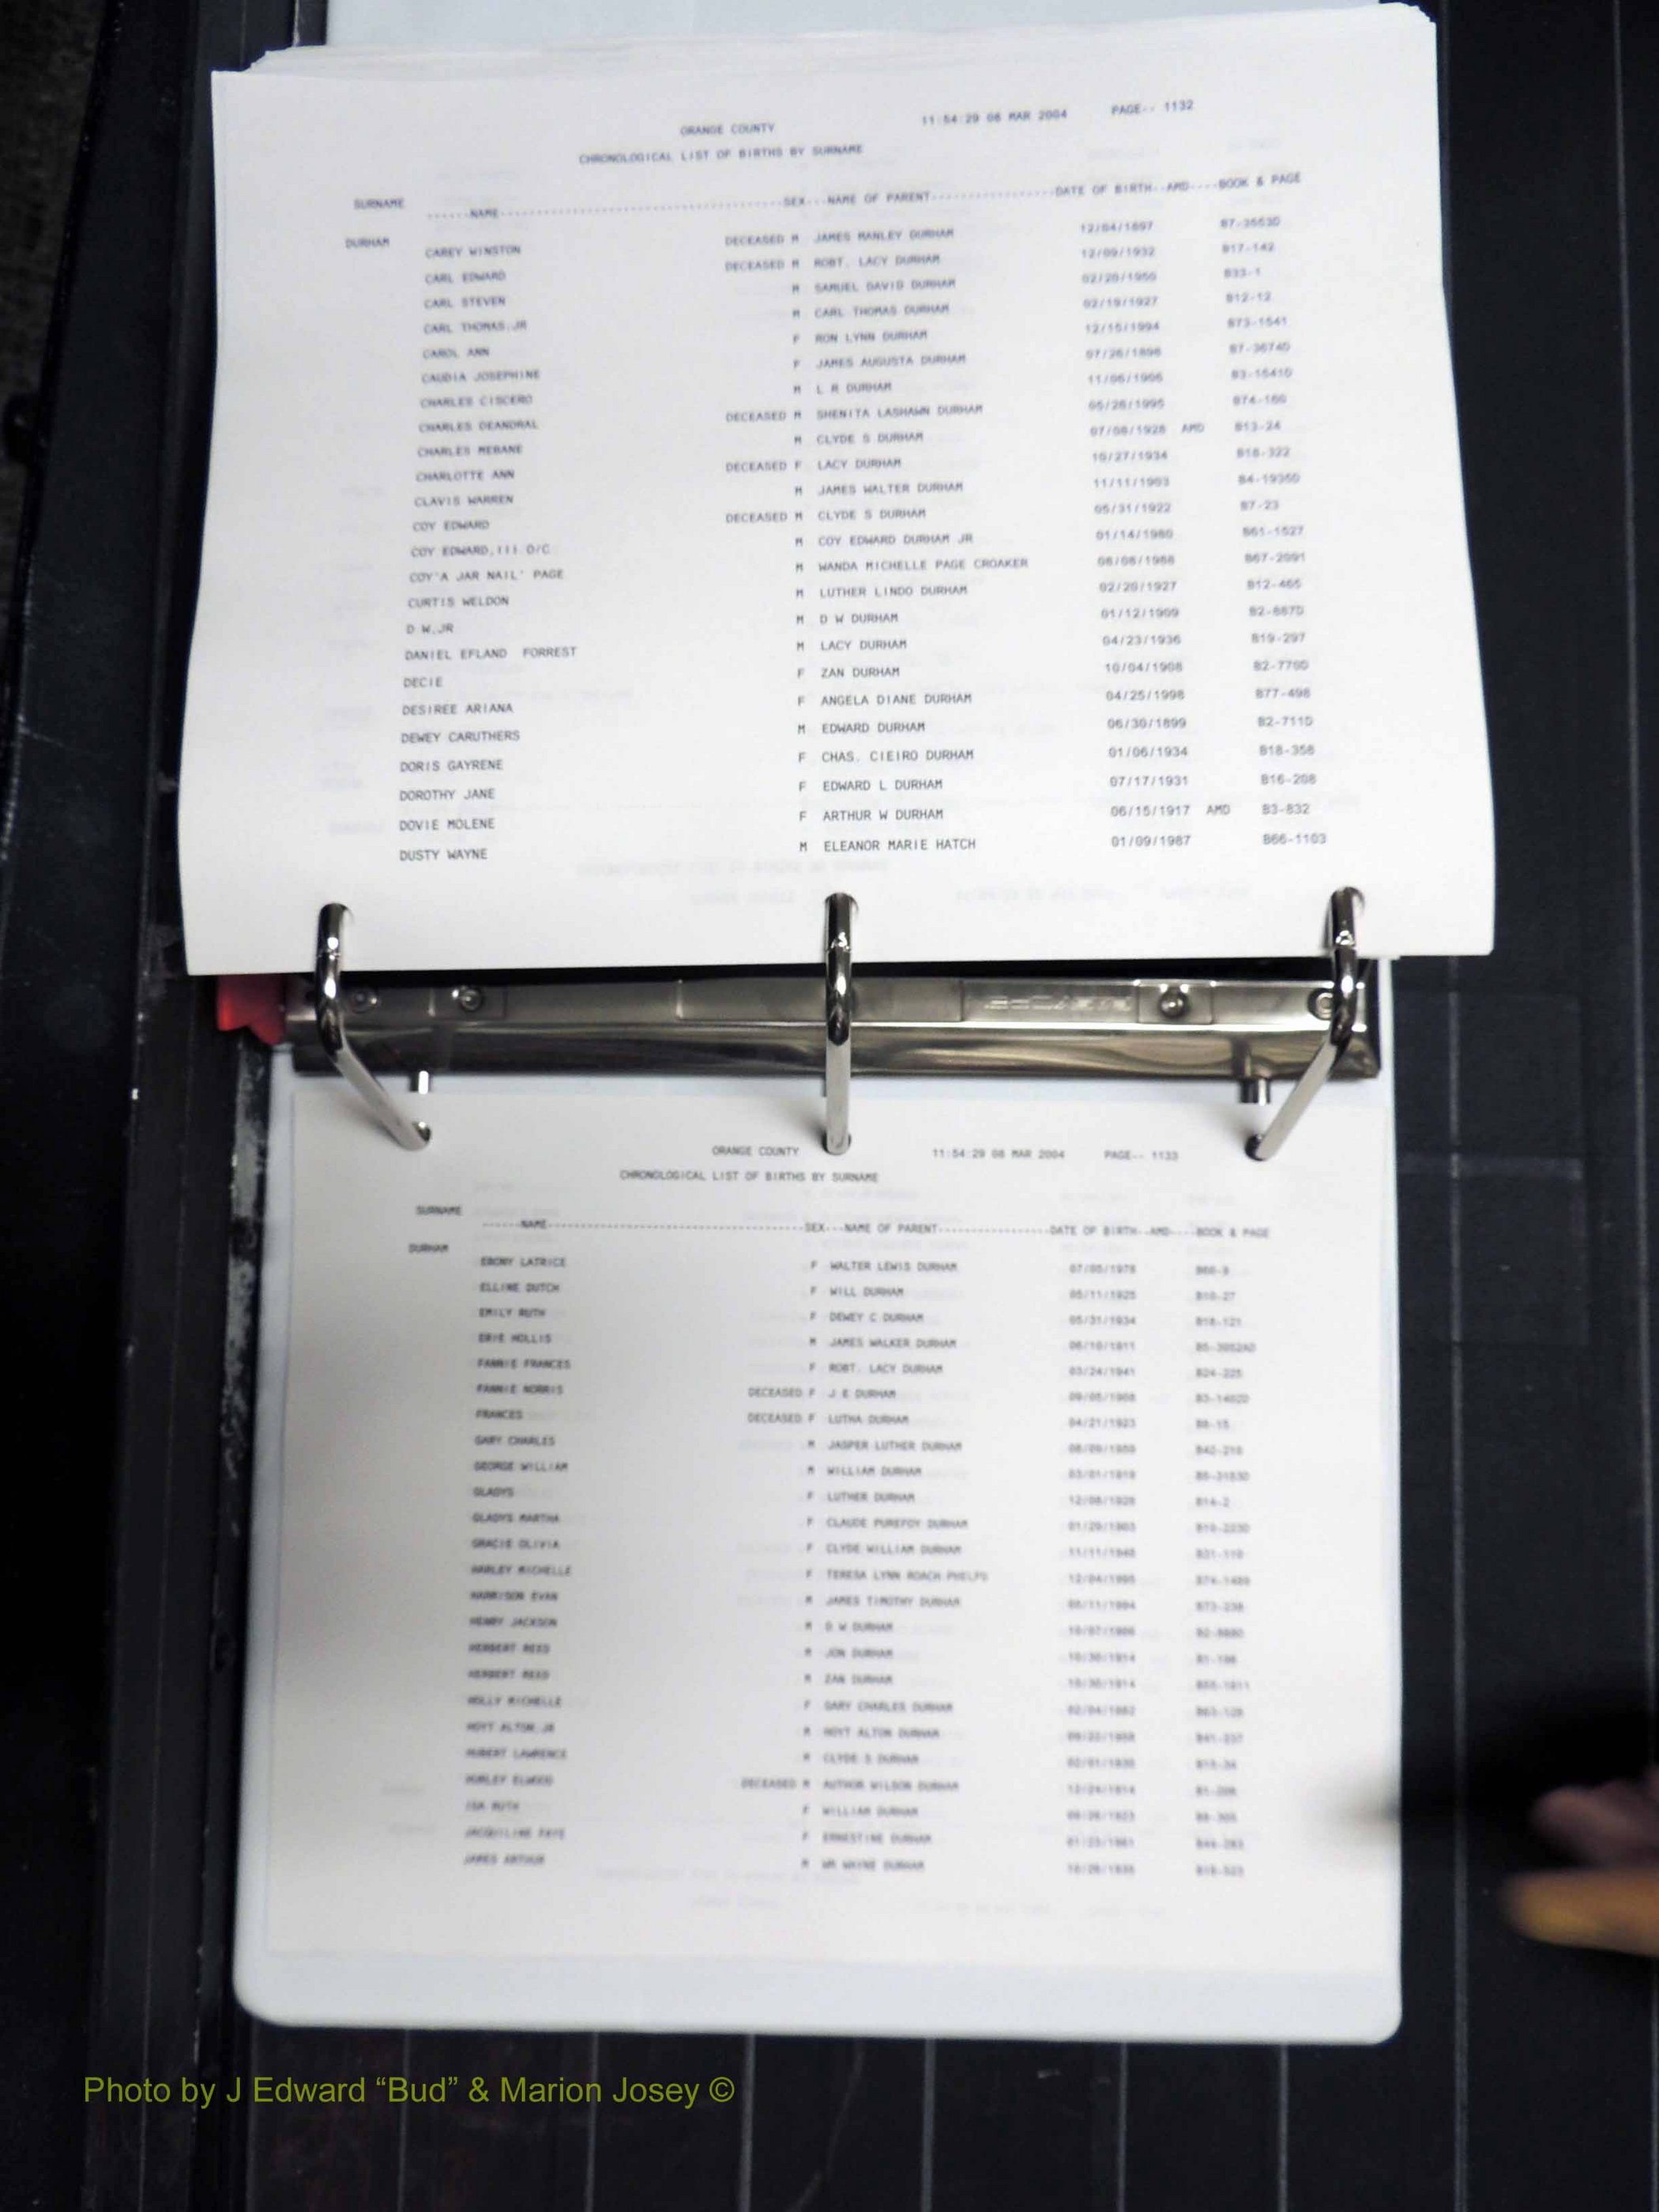 ORANGE COUNTY 11:54:29 08 MAR 2004 PAGE-- 1132
CHRONOLOGICAL LIST OF BIRTHS BY SURNAME
SURNAME ......NAME SEX...NAME OF PARENT DATE OF BIRTH..AMD....BOOK & PAGE
DURHAM
CAREY WINSTON DECEASED M JAMES MANLEY DURHAM 12/04/1897
CARL EDWARD DECEASED M ROBT. LACY DURHAM 12/09/1932 B17-142
CARL STEVEN M SAMUEL DAVID DURHAM 02/20/1950 B33-1
CARL THOMAS,JR M CARL THOMAS DURHAM 02/19/1927 B12-12
CAROL ANN F RON LYNN DURHAM 12/15/1994 B73-1541
CAUDIA JOSEPHINE F JAMES AUGUSTA DURHAM B7-3674D
CHARLES CISCERO M L R DURHAM B3-1541D
CHARLES DEANDRAL DECEASED M SHENITA LASHAWN DURHAM 05/26/1995
CHARLES MEBANE M CLYDE S DURHAM 07/08/1928 AMD B13-24
CHARLOTTE ANN DECEASED F LACY DURHAM 10/27/1934 B18-322
CLAVIS WARREN M JAMES WALTER DURHAM 11/11/1903 B4-1935D
COY EDWARD DECEASED M CLYDE S DURHAM 05/31/1922 B7-23
COY EDWARD,III O/C M COY EDWARD DURHAM JR 01/14/1980 B61-1527
COY'A JAR NAIL' PAGE M WANDA MICHELLE PAGE CROAKER B67-2091
CURTIS WELDON M LUTHER LINDO DURHAM 02/20/1927 B12-465
D W,JR M D W DURHAM 01/12/1909 B2-887D
DANIEL EFLAND FORREST M LACY DURHAM 04/23/1936 B19-297
DECIE F ZAN DURHAM 10/04/1908 B2-779D
DESIREE ARIANA F ANGELA DIANE DURHAM 04/25/1998 B77-498
DEWEY CARUTHERS M EDWARD DURHAM 06/30/1899 B2-711D
DORIS GAYRENE F CHAS. CIEIRO DURHAM 01/06/1934 B18-358
DOROTHY JANE F EDWARD L DURHAM 07/17/1931 B16-208
DOVIE MOLENE F ARTHUR W DURHAM 06/15/1917 AMD B3-832
DUSTY WAYNE M ELEANOR MARIE HATCH 01/09/1987 B66-1103
ORANGE COUNTY 11:54:29 08 MAR 2004 PAGE-- 1133
CHRONOLOGICAL LIST OF BIRTHS BY SURNAME
SURNAME ......NAME SEX...NAME OF PARENT DATE OF BIRTH..AMD....BOOK & PAGE
DURHAM
EBONY LATRICE F WALTER LEWIS DURHAM
ELLINE DUTCH F WILL DURHAM 05/11/1925 B10-27
EMILY RUTH F DEWEY C DURHAM 05/31/1934 B18-121
ERIE HOLLIS M JAMES WALKER DURHAM
FANNIE FRANCES F ROBT. LACY DURHAM 03/24/1941 B24-225
FANNIE NORRIS DECEASED F J E DURHAM
FRANCES DECEASED F LUTHA DURHAM 04/21/1923
GARY CHARLES M JASPER LUTHER DURHAM
GEORGE WILLIAM M WILLIAM DURHAM
GLADYS F LUTHER DURHAM B14-2
GLADYS MARTHA F CLAUDE PUREFOY DURHAM
GRACIE OLIVIA F CLYDE WILLIAM DURHAM
HARLEY MICHELLE F TERESA LYNN ROACH PHELPS
HARRISON EVAN M JAMES TIMOTHY DURHAM
HENRY JACKSON M D W DURHAM
HERBERT REED M JON DURHAM 10/30/1914
HERBERT REED M ZAN DURHAM 10/30/1914
HOLLY MICHELLE F GARY CHARLES DURHAM
HOYT ALTON,JR M HOYT ALTON DURHAM
HUBERT LAWRENCE M CLYDE S DURHAM
HURLEY ELWOOD DECEASED M AUTHOR WILSON DURHAM
RUTH F WILLIAM DURHAM
JACQUILINE FAYE F ERNESTINE DURHAM
JAMES ARTHUR M WM WAYNE DURHAM
Photo by J Edward “Bud” & Marion Josey ©